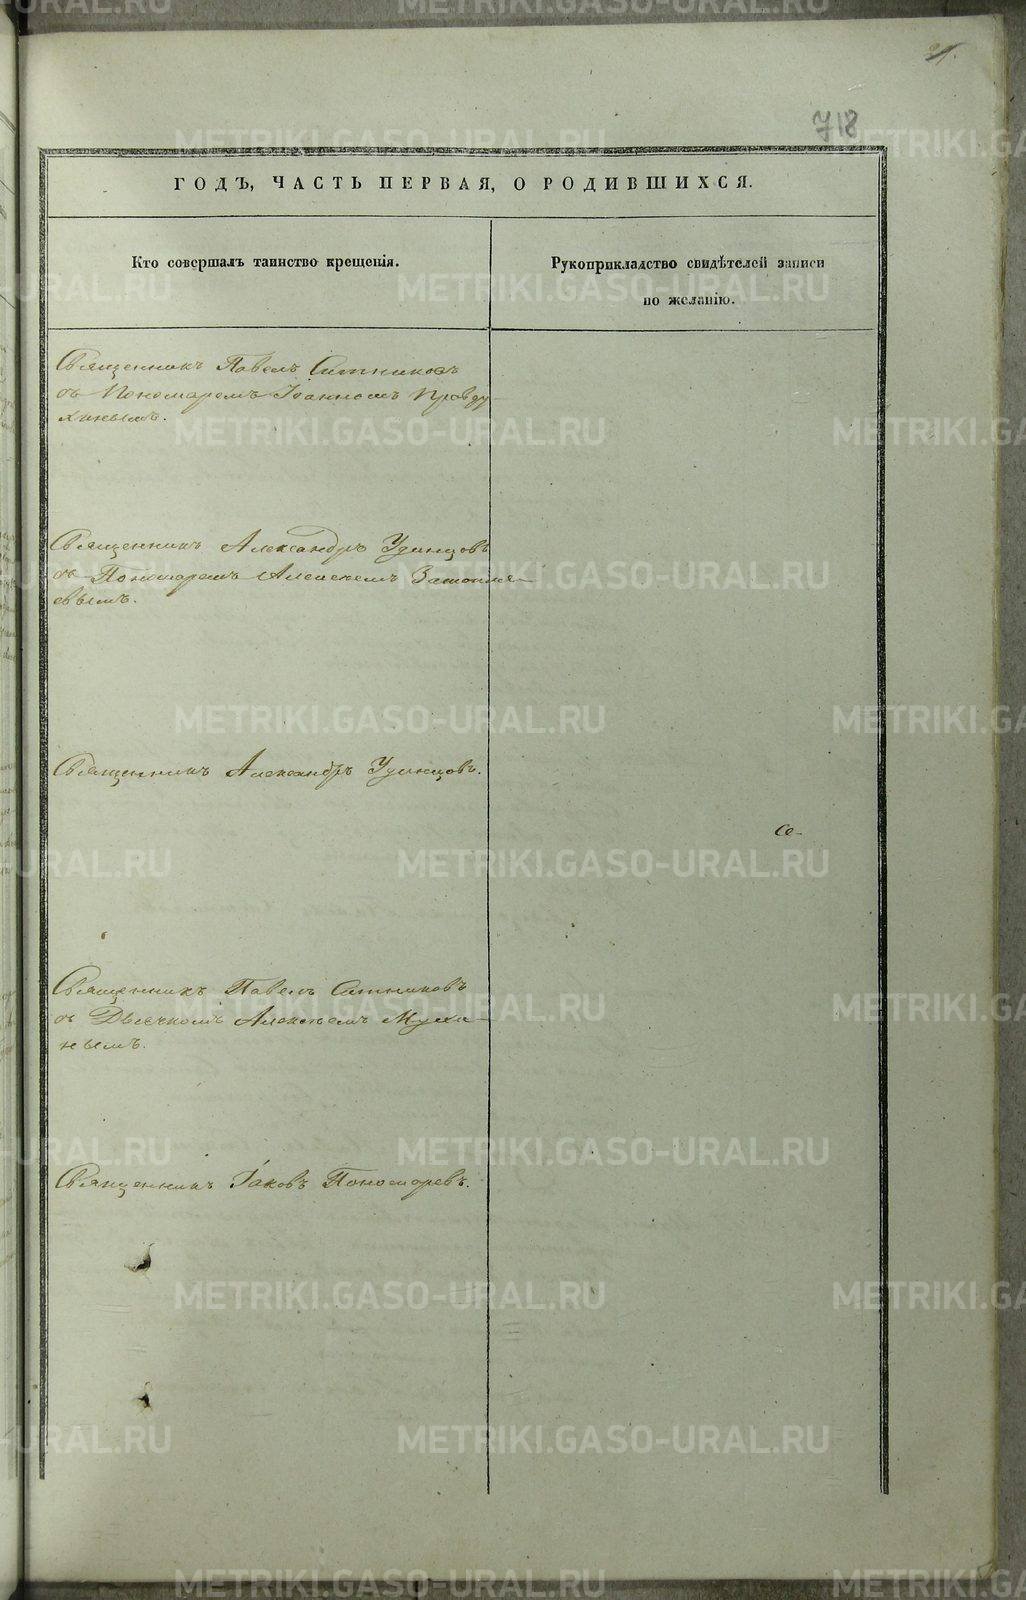 718
ГОДЪ, ЧАСТЬ ПЕРВАЯ, О РОДИВШИХСЯ.
Кто совершалъ таинство крещенія.
Рукоприкладство свидѣтелей записи
по желанію.
Священникъ Павелъ Ситниковъ
съ Пономаремъ Іоанномъ Правду
хинымъ.
Священникъ Александръ Удинцовъ
съ Пономаремъ Алексѣемъ
евымъ.
Священникъ Александръ Удинцовъ.
Священникъ Павелъ Ситниковъ
съ Дьячкомъ Алексѣемъ Мухи-
нымъ.
Священникъ Іаковъ Пономаревъ.
METRIKI.GASO-URAL.RU